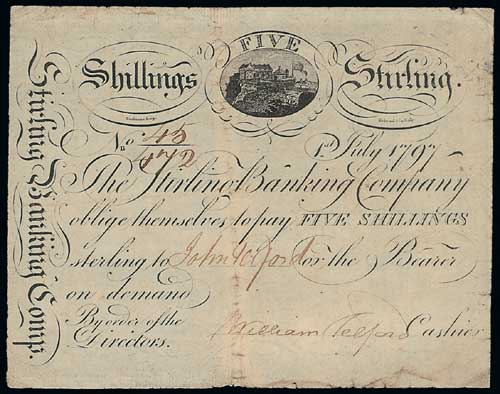 FIVE
Shillings
Stirling.
No 45
472
1st July 1797
The Stirling Banking Company
oblige themselves to pay FIVE SHILLINGS
sterling to John Telford or the Bearer
on demand
By order of the
Directors.
William Telford Cashier
Stirling Banking Comp.